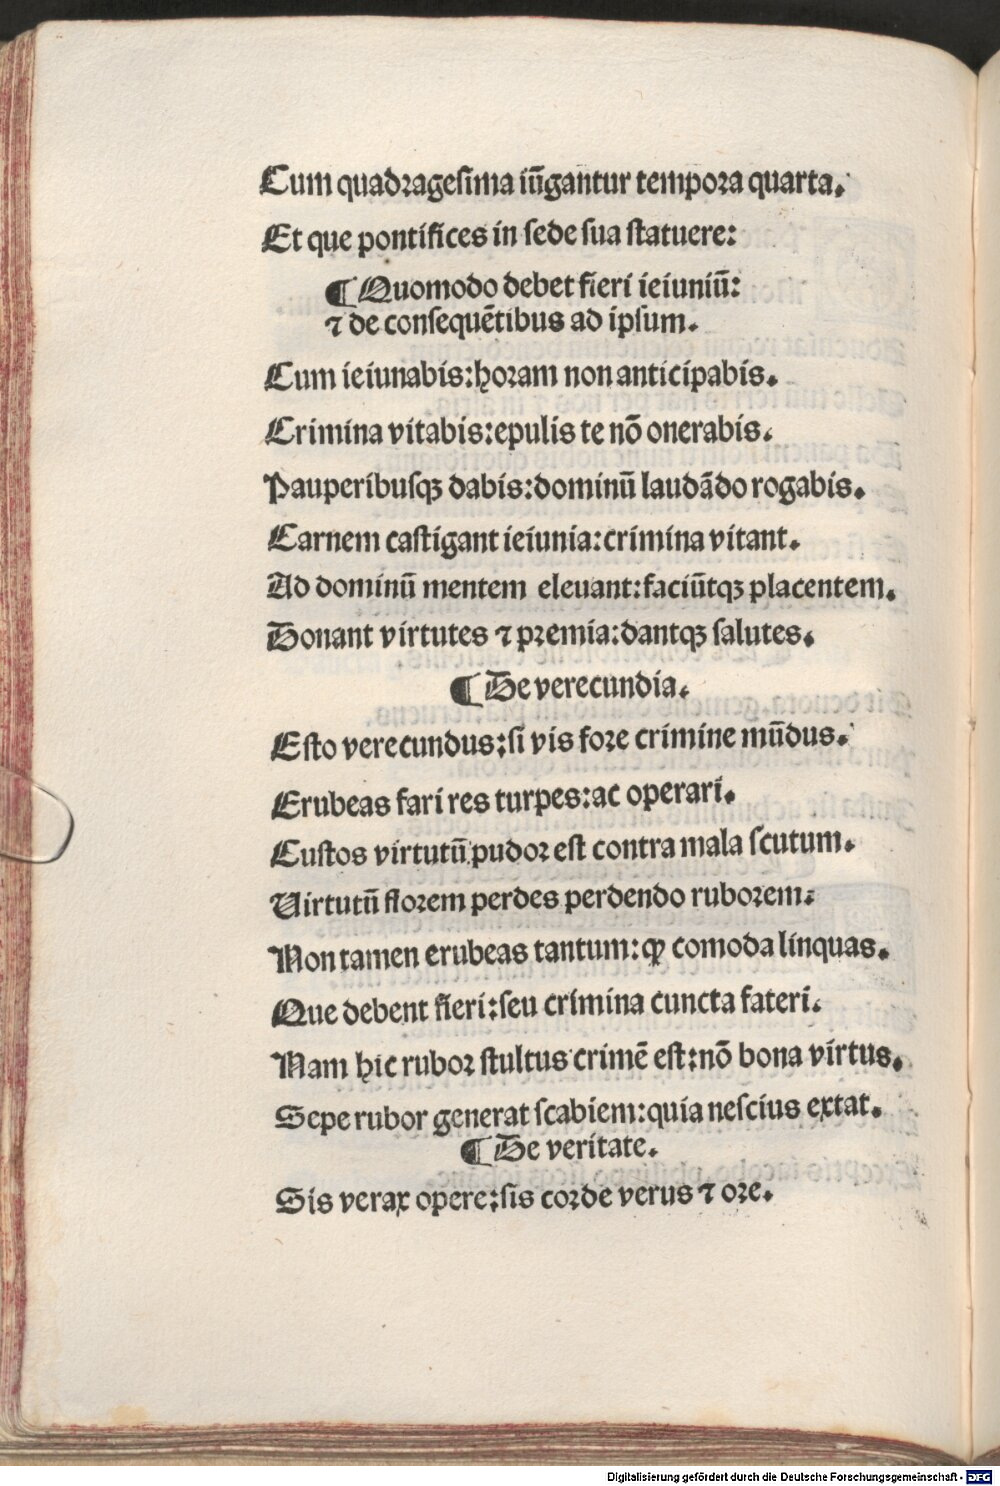 Cum quadragesima iūgantur tempora quarta.
Et que pontifices in sede sua statuere:
¶ Quomodo debet fieri ieiuniū:
⁊ de consequētibus ad ipsum.
Cum ieiunabis: horam non anticipabis.
Crimina vitabis: epulis te nō onerabis.
Pauperibusqꝫ dabis: dominū laudādo rogabis.
Carnem castigant ieiunia: crimina vitant.
Ad dominū mentem eleuant: faciūtqꝫ placentem.
Donant virtutes ⁊ premia: dantqꝫ salutes.
¶ De verecundia.
Esto verecundus: si vis fore crimine mūdus.
Erubeas fari res turpes: ac operari.
Custos virtutū pudor est contra mala scutum.
Virtutū florem perdes perdendo ruborem:
Non tamen erubeas tantum: ꝙ comoda linquas.
Que debent fieri: seu crimina cuncta fateri.
Nam hic rubor stultus crimē est: nō bona virtus.
Sepe rubor generat scabiem: quia nescius extat.
¶ De veritate.
Sis verax opere: sis corde verus ⁊ ore.
Digitalisierung gefördert durch die Deutsche Forschungsgemeinschaft - DFG